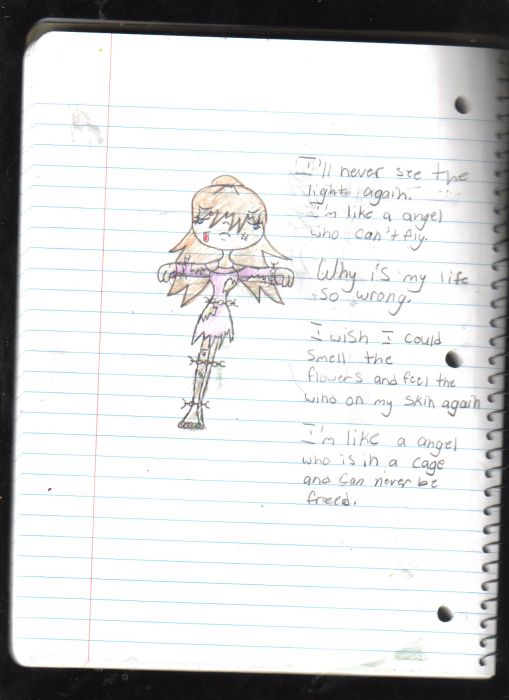 I'll never see the
light again.
I'm like a angel
who can't fly.
Why is my life
so wrong.
I wish I could
smell the
flowers and feel the
wind on my skin again
I'm like a angel
who is in a cage
and can never be
freed.